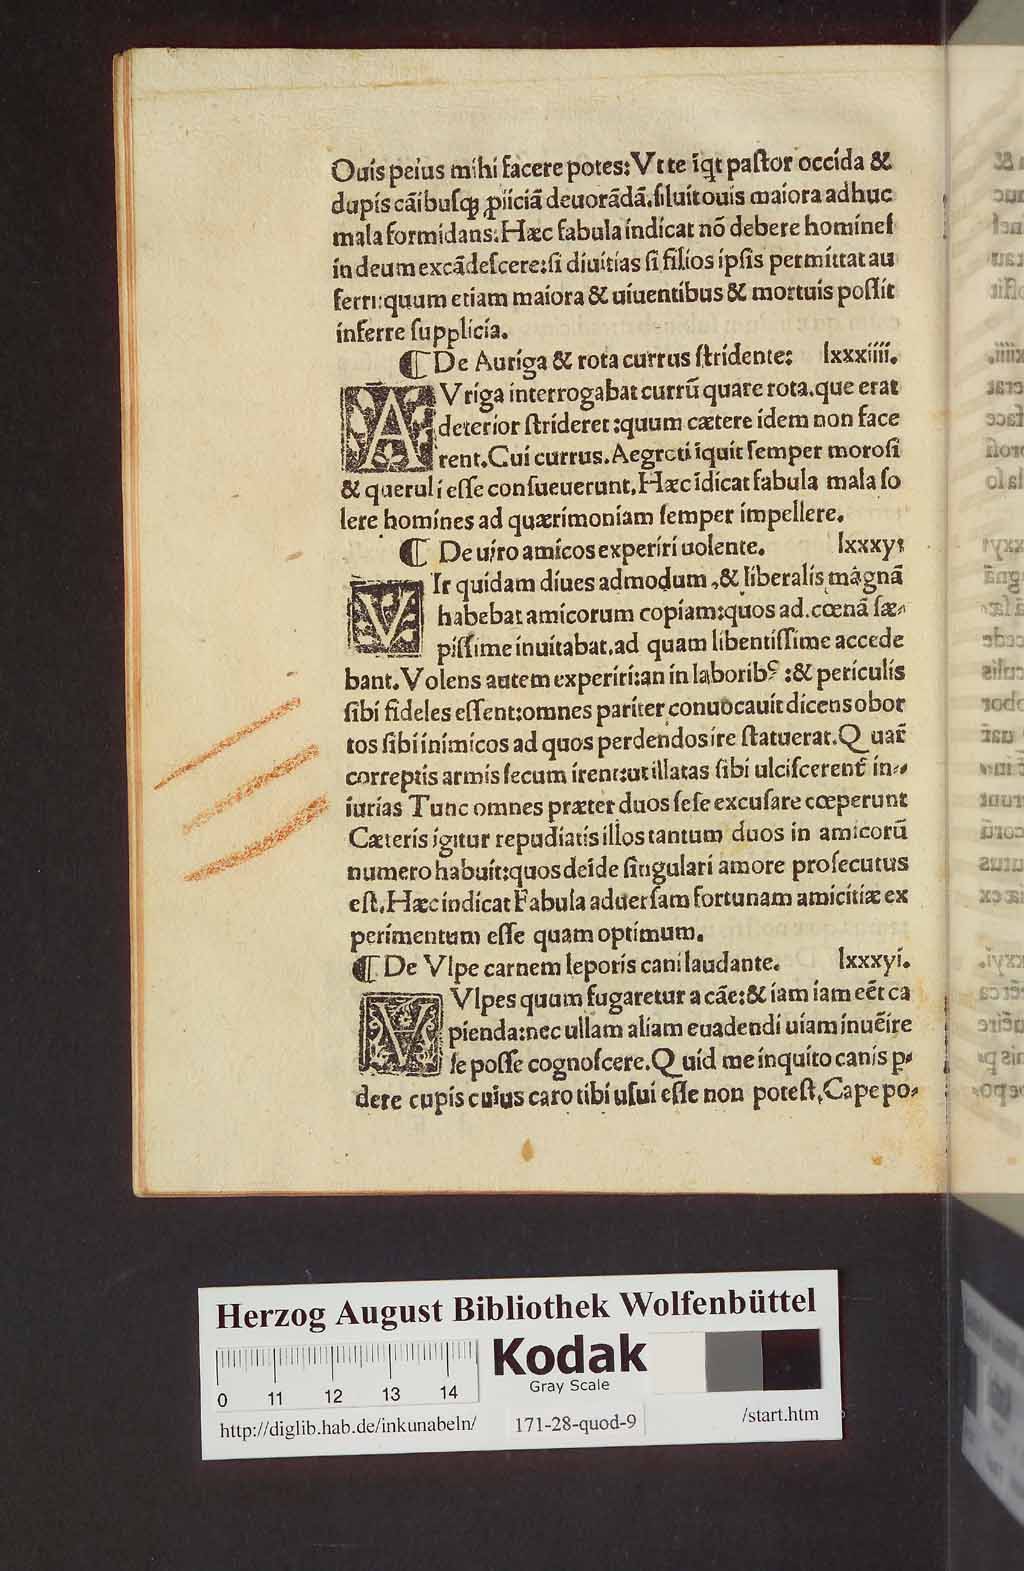 Ouis peius mihi facere potes: Vt te īqt paſtor occida &
dapis cāibuſqȝ ꝓiiciā deuorādā. ſiluit ouis maiora adhuc
mala formidans. Hæc fabula indicat nō debere homineſ
in deum excādeſcere: ſi diuitias ſi filios ipſis permittat au
ferri: quum etiam maiora & uiuentibus & mortuis poſſit
inferre ſupplicia.
¶ De Auriga & rota currus ſtridente: lxxxiiii.
AVriga interrogabat currū quare rota. que erat
deterior ſtrideret: quum cætere idem non face
rent. Cui currus. Aegroti īquit ſemper moroſi
& queruli eſſe conſueuerunt. Hæc īdicat fabula mala ſo
lere homines ad quærimoniam ſemper impellere.
¶ De uiro amicos experiri uolente. lxxxy:
VIr quidam diues admodum, & liberalis magnā
habebat amicorum copiam: quos ad. cœnā ſæ-
piſſime inuitabat. ad quam libentiſſime accede
bant. Volens autem experiri: an in laboribꝰ: & periculis
ſibi fideles eſſent: omnes pariter conuocauit dicens obor
tos ſibi inimicos ad quos perdendos ire ſtatuerat. Quar̄
correptis armis ſecum irent: ut illatas ſibi ulciſcerent̄ in-
iurias Tunc omnes præter duos ſeſe excuſare cœperunt
Cæteris igitur repudiatis illos tantum duos in amicorū
numero habuit: quos deīde ſingulari amore proſecutus
eſt. Hæc indicat Fabula aduerſam fortunam amicitiæ ex
perimentum eſſe quam optimum.
¶ De Vlpe carnem leporis cani laudante. lxxxyi.
VVlpes quum fugaretur a cāe: & iam iam eēt ca
pienda: nec ullam aliam euadendi uiam inuēire
ſe poſſe cognoſcere. Quid me inquit o canis p-
dere cupis cuius caro tibi uſui eſſe non poteſt, Cape po-
Herzog August Bibliothek Wolfenbüttel
Kodak
Gray Scale
0 11 12 13 14
http://diglib.hab.de/inkunabeln/ 171-28-quod-9 /start.htm